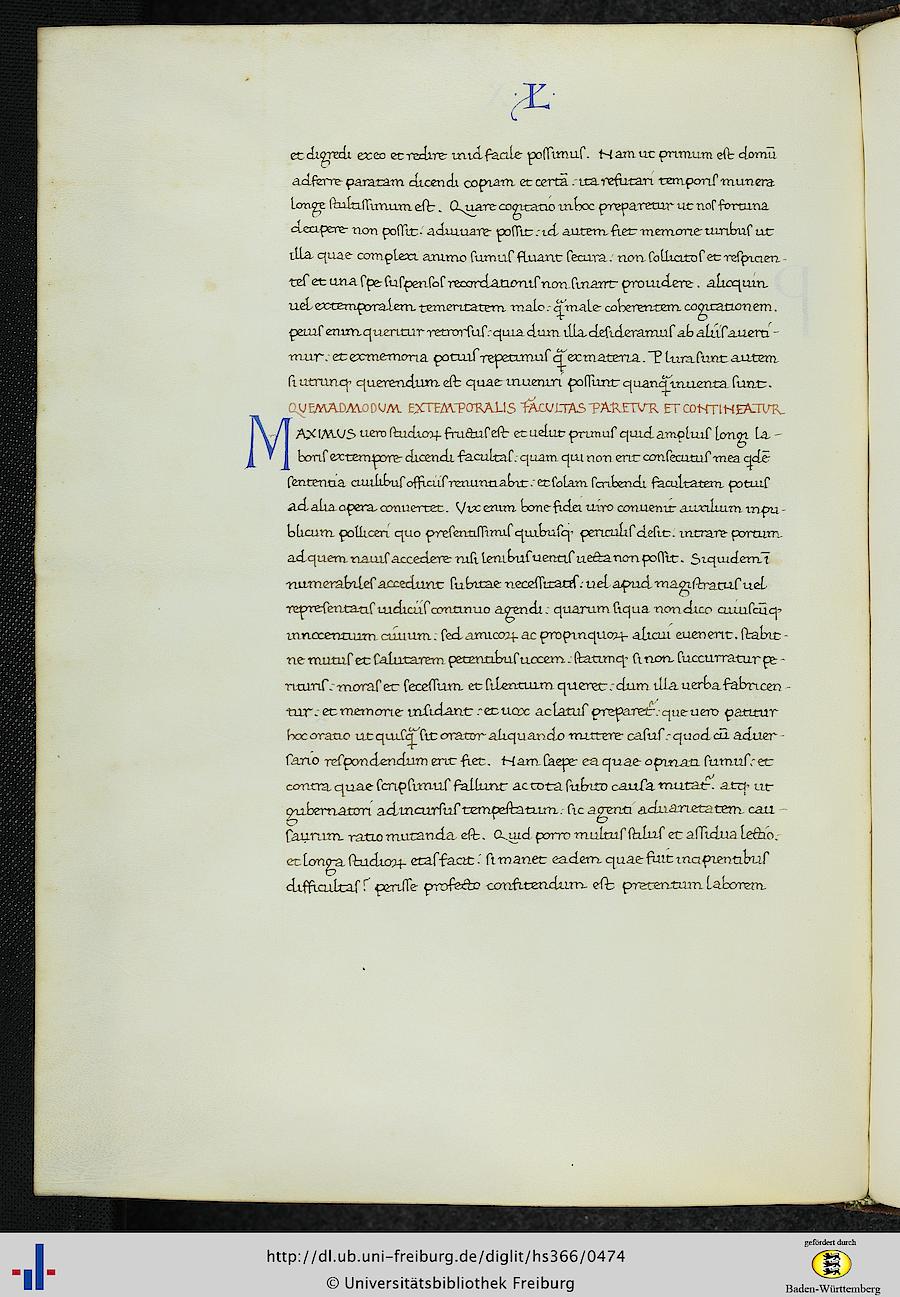 ·L·
et digredi ex eo et redire in id facile possimus. Nam ut primum est domū
adferre paratam dicendi copiam et certā: ita refutari temporis munera
longe stultissimum est. Quare cogitatio in hoc preparetur ut nos fortuna
decipere non possit: adiuuare possit: id autem fiet memorie uiribus ut
illa quae complexi animo sumus fluant secura: non sollicitos et respicien-
tes et una spe suspensos recordationis non sinant prouidere. alioquin
uel extemporalem temeritatem malo: q̄ male coherentem cogitationem.
peius enim queritur retrorsus: quia dum illa desideramus ab aliis auerti-
mur: et ex memoria potius repetimus q̄ ex materia. Plura sunt autem
si utrunq; querendum est quae inueniri possunt quanq̄ inuenta sunt.
QUEMADMODUM EXTEMPORALIS FACULTAS PARETUR ET CONTINEATUR
MAXIMUS uero studioꝝ fructus est et uelut primus quid amplius longi la-
boris extempore dicendi facultas: quam qui non erit consecutus mea qdē
sententia ciuilibus officiis renuntiabit: et solam scribendi facultatem potius
ad alia opera conuertet. Vix enim bone fidei uiro conuenit auxilium in pu-
blicum polliceri quo presentissimis quibusq; periculis desit. intrare portum
ad quem nauis accedere nisi lenibus uentis uecta non possit. Siquidem ī
numerabiles accedunt subitae necessitates: uel apud magistratus uel
representatis iudiciis continuo agendi: quarum siqua non dico cuiuscūq;
innocentium ciuium: sed amicoꝝ ac propinquoꝝ alicui euenerit. stabit-
ne mutus et salutarem petentibus uocem: statimq; si non succurratur pe-
rituris: moras et secessum et silentium queret: dum illa uerba fabricen-
tur: et memorie insidant: et uox ac latus prepareť: que uero patitur
hoc oratio ut quisq̄ sit orator aliquando mittere casus: quod cū aduer-
sario respondendum erit fiet. Nam saepe ea quae opinati sumus: et
contra quae scripsimus fallunt ac tota subito causa mutať. atq; ut
gubernatori ad incursus tempestatum: sic agenti ad uarietatem cau-
saurum ratio mutanda est. Quid porro multus stilus et assidua lectio:
et longa studioꝝ etas facit: si manet eadem quae fuit incipientibus
difficultas? perisse profecto confitendum est pretentum laborem
http://dl.ub.uni-freiburg.de/diglit/hs366/0474
© Universitätsbibliothek Freiburg
gefördert durch
Baden-Württemberg